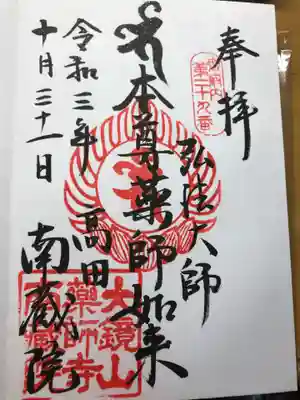 奉拝
御府内
第二十九番
弘法大師
本尊薬師如来
高田
南蔵院
令和三年
十月三十一日
大鏡山
薬師寺
南蔵院